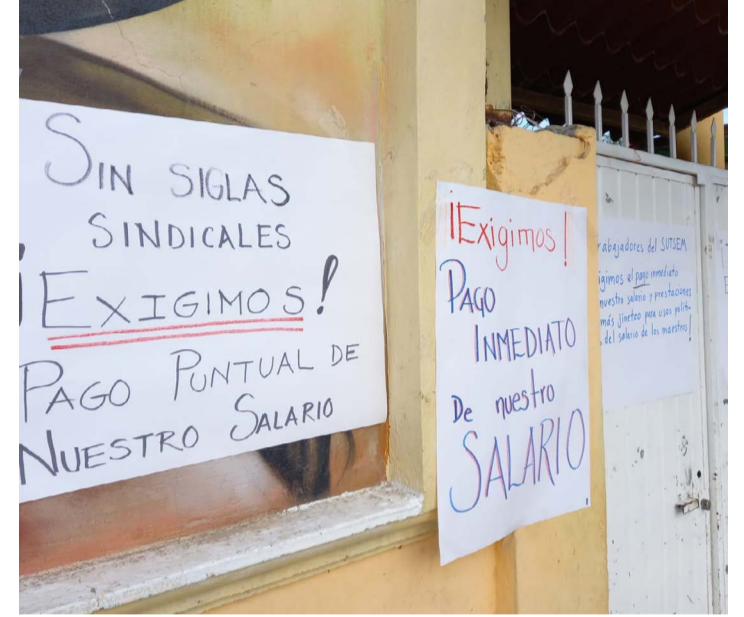 SIN SIGLAS
SINDICALES
¡EXIGIMOS!
PAGO PUNTUAL DE
NUESTRO SALARIO
¡Exigimos!
PAGO
INMEDIATO
De nuestro
SALARIO
rabajadores del SUTSEM
igimos el pago inmediato
nuestro salario y prestaciones
más jineteo para usos políti-
del salario de los maestros!